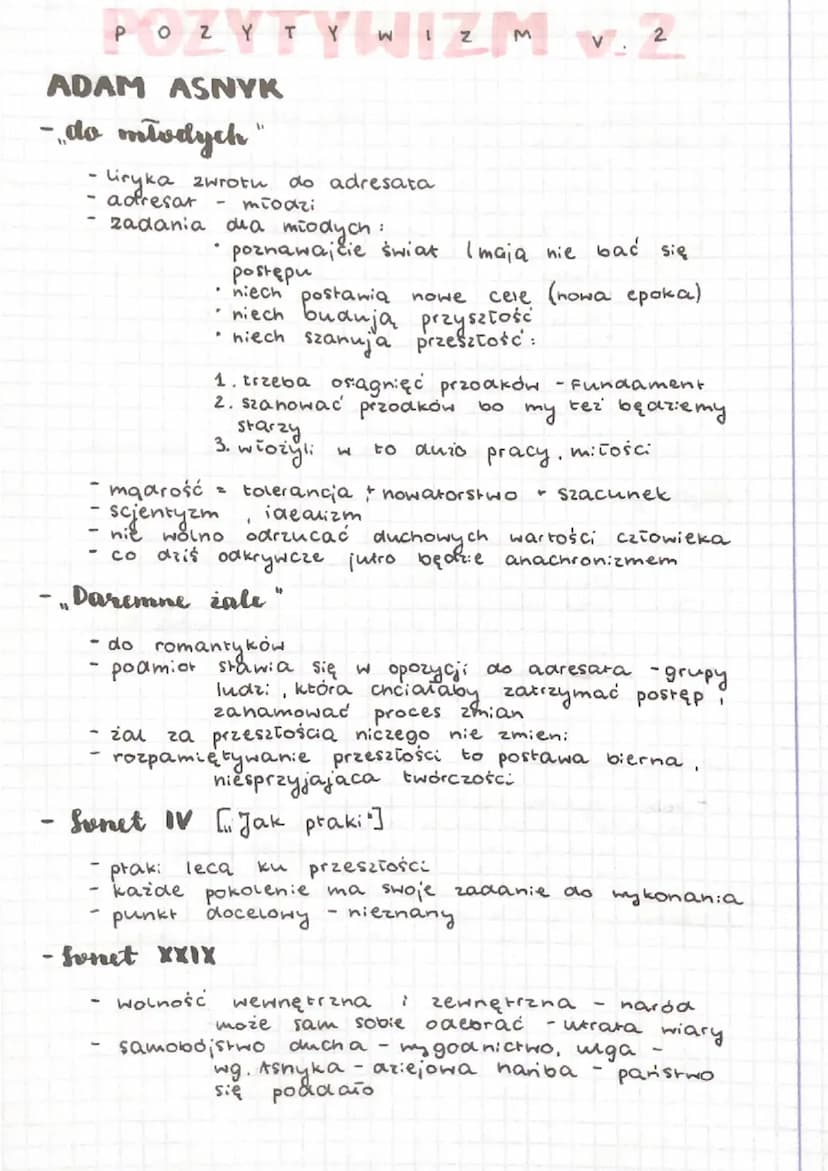 POZYTYWIZM v.2
ADAM ASNYK
- „do młodych"
- liryka zwrotu do adresata
- adresat - młodzi
- zadania dla młodych:
• poznawajcie świat (mają nie bać się
postępu
• niech postawią nowe cele (nowa epoka)
• niech budują przyszłość
• niech szanują przeszłość:
1. trzeba osiągnięć przodków - fundament
2. szanować przodków bo my też będziemy
starzy
3. włożyli w to dużo pracy, miłości
- mądrość = tolerancja + nowatorstwo + szacunek
- scjentyzm, idealizm
- nie wolno odrzucać duchowych wartości człowieka
- co dziś odkrywcze jutro będzie anachronizmem
- „Daremne żale"
- do romantyków
- podmiot stawia się w opozycji do adresata - grupy
ludzi, która chciałaby zatrzymać postęp,
zahamować proces zmian
- żal za przeszłością niczego nie zmieni
- rozpamiętywanie przeszłości to postawa bierna,
niesprzyjająca twórczości
- Sonet IV [„Jak ptaki"]
- ptaki lecą ku przeszłości
- każde pokolenie ma swoje zadanie do wykonania
- punkt docelowy - nieznany
- Sonet XXIX
- wolność wewnętrzna i zewnętrzna - naród
może sam sobie odebrać - utrata wiary
- samobójstwo ducha - wygodnictwo, ulga -
wg. Asnyka - dziejowa hańba - państwo
się poddało